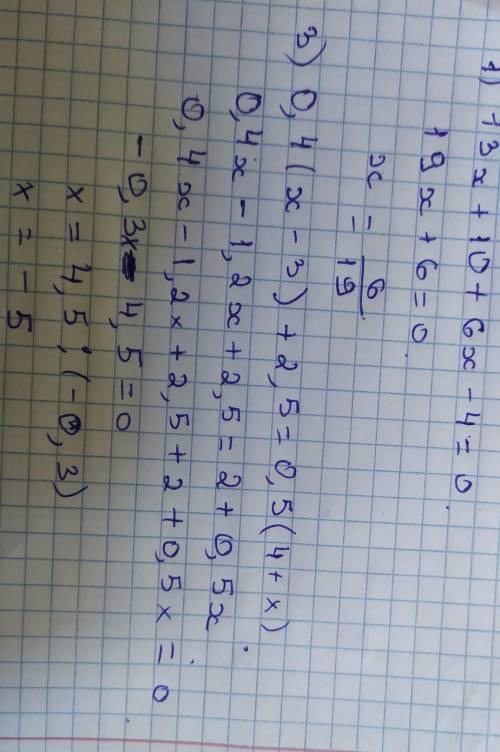 1) 13x + 10 + 6x - 4 = 0
19x + 6 = 0
x = 6/19
3) 0,4(x - 3) + 2,5 = 0,5(4 + x)
0,4x - 1,2x + 2,5 = 2 + 0,5x
0,4x - 1,2x + 2,5 + 2 + 0,5x = 0
- 0,3x - 4,5 = 0
x = 4,5 : (-0,3)
x = - 5